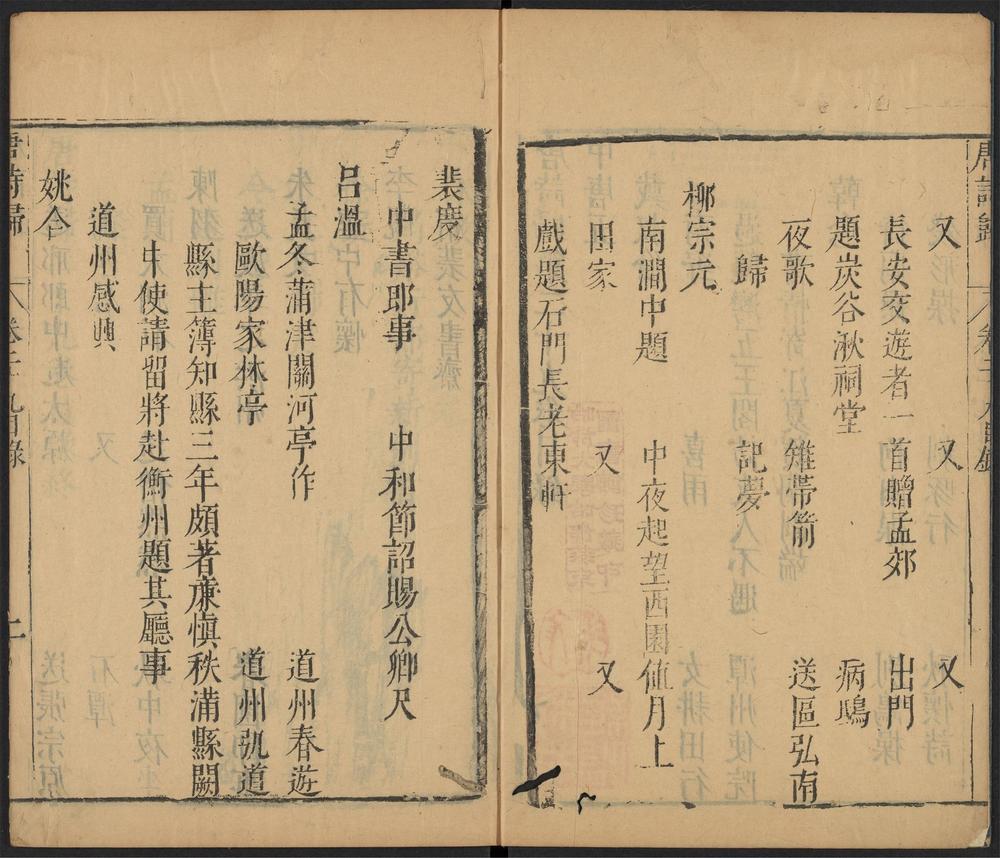 又 又 又
長安交遊者一首贈孟郊 出門
題炭谷湫祠堂 病鴟
夜歌 雉帶箭 送區弘南
歸 記夢
柳宗元
南澗中題 中夜起望西園値月上
田家 又 又
戲題石門長老東軒
裴度
中書即事 中和節詔賜公卿尺
呂溫
孟冬蒲津關河亭作 道州春遊
歐陽家林亭 道州北道
縣主簿知縣三年頗著廉慎秩滿縣闕
申使請留將赴衡州題其廳事
道州感興
姚合